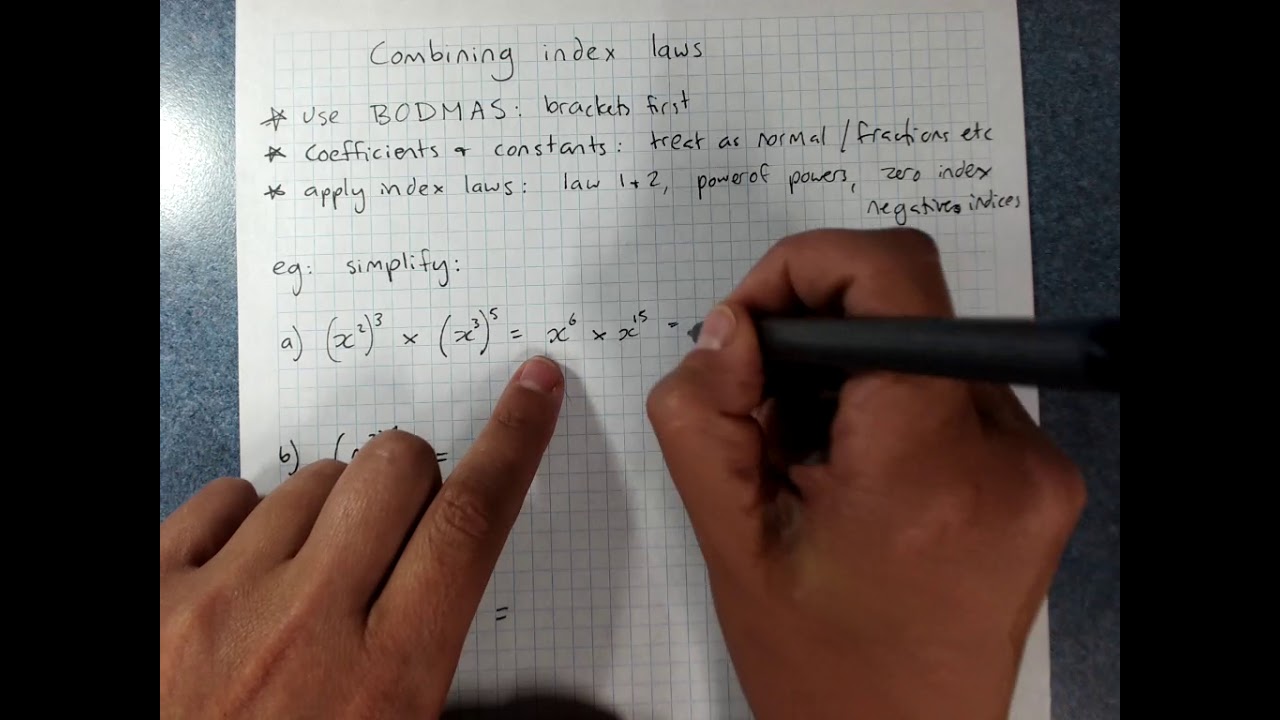 Combining index laws
* Use BODMAS: brackets first
* Coefficients & constants: treat as normal / fractions etc
* apply index laws: law 1+2, power of powers, zero index
negative indices
eg: simplify:
a) (x²)³ × (x³)⁵ = x⁶ × x¹⁵ =
b) ( =
=